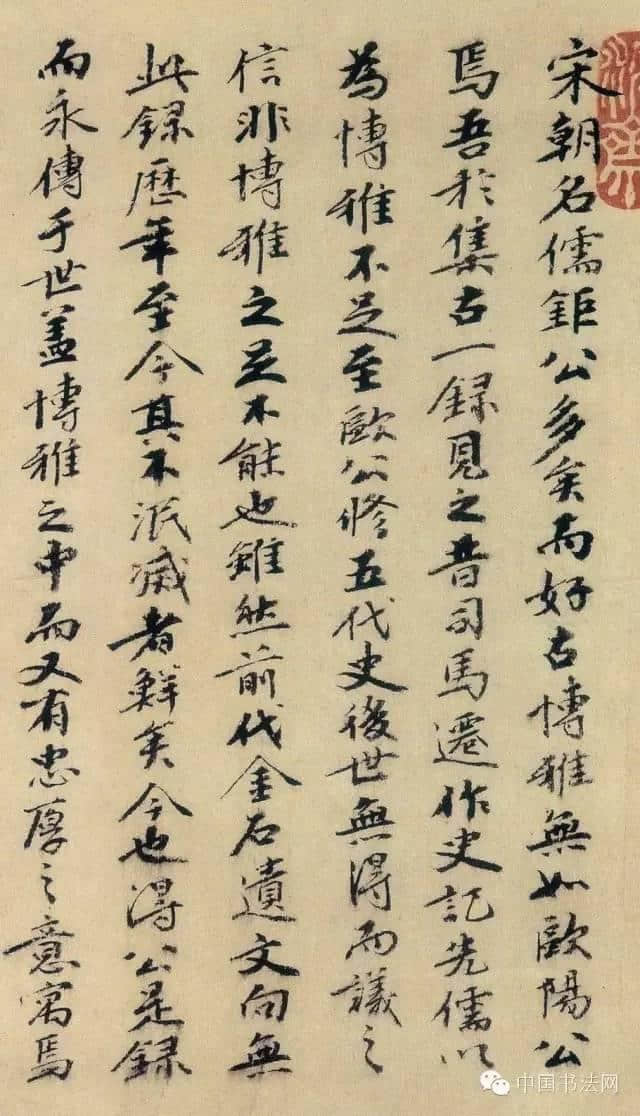 宋朝名儒鉅公多矣而好古博雅無如歐陽公
焉吾於集古一録見之昔司馬遷作史記先儒以
為博雅不足至歐公修五代史後世無得而議之
信非博雅之足不能也雖然前代金石遺文向無
此録歷年至今其不泯滅者鮮矣今也得公是録
而永傳于世蓋博雅之中而又有忠厚之意寓焉
中国书法网